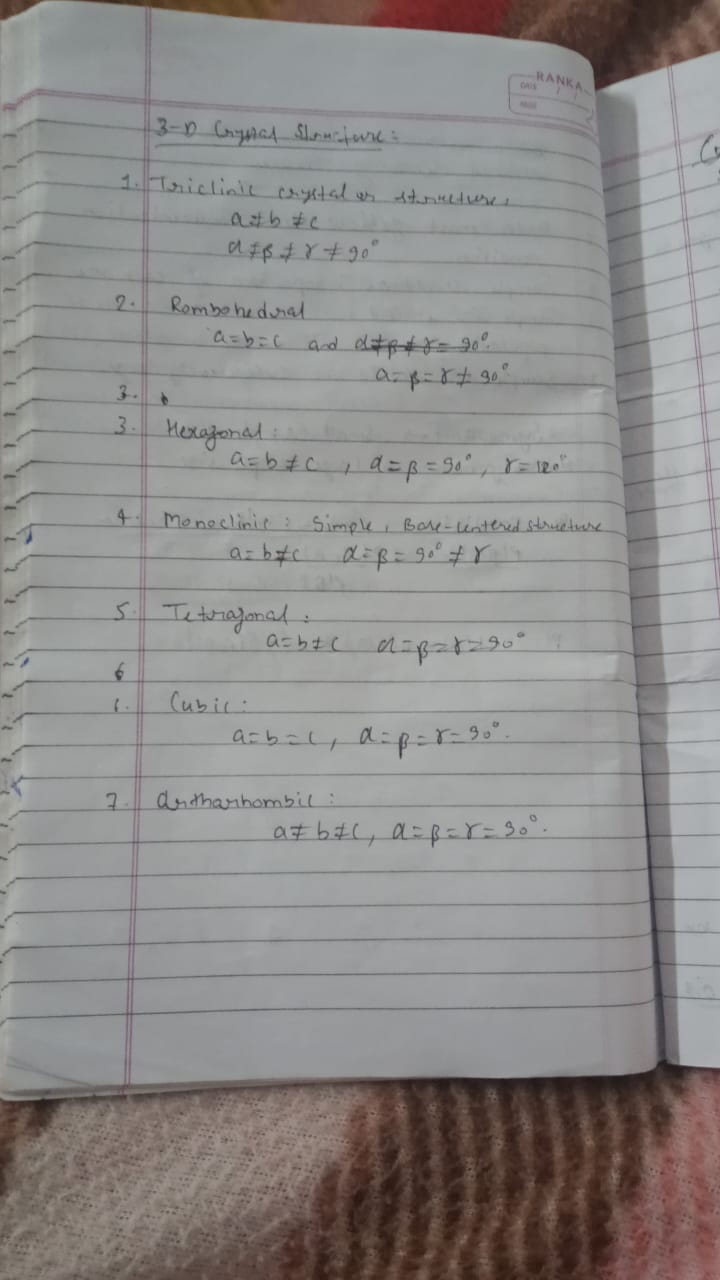 RANKA
DATE / /
PAGE
3-D Crystal Structure:
1. Triclinic crystal or structure,
a≠b≠c
α≠β≠γ≠90°
2. Rombohedural
a=b=c and α≠β≠γ=90°.
a=β=γ≠90°
3.
3. Hexagonal:
a=b≠c, α=β=90°, γ=120°
4. Monoclinic: Simple, Base-centered structure
a=b≠c α=β=90°≠γ
5. Tetragonal:
a=b≠c α=β=γ=90°
6
6. Cubic:
a=b=c, α=β=γ=90°.
7. Orthorhombic:
a≠b≠c, α=β=γ=90°.